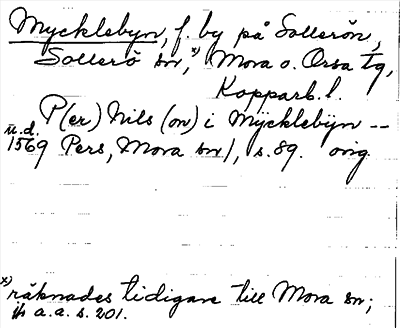 Mycklebyn, f. by på Sollerön,
Sollerö sn,x) Mora o. Orsa tg,
Kopparb. l.
P(er) Nils (on) i Mÿcklebÿn --
u.d.
1569 Pers, Mora sn/, s. 89. orig.
x) räknades tidigare till Mora sn;
jfr a.a. s. 201.